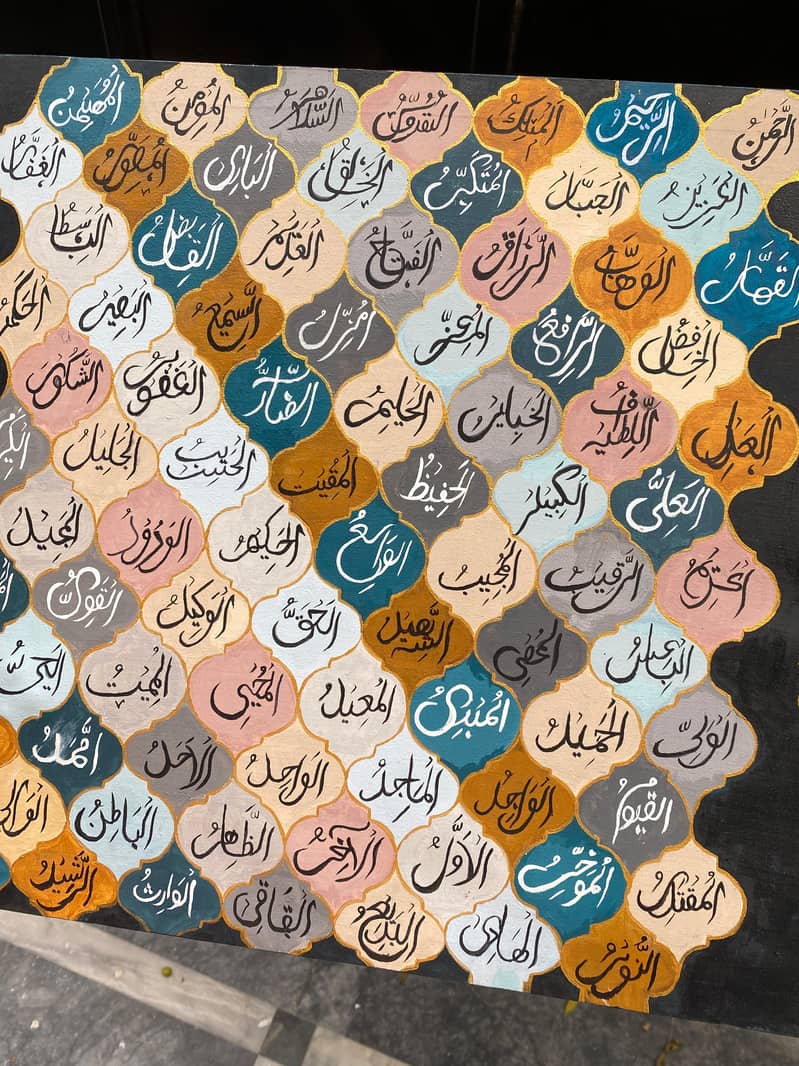 الرَّحمٰن الرَّحيم الملك القدُّوس السلام المؤمن المهيمن
العزيز الجبار المتكبر الخالق البارئ المصور الغفار
القهار الوهاب الرزاق الفتاح العليم القابض الباسط
الخافض الرافع المعز السميع البصير الحكم
العدل اللطيف الخباير الحليم الضار الغفور الشكور
العلي الكبير الحفيظ المقيت الحسيب الجليل
الرقيب المجيب الواسع الحكيم الودود المجيد
الشهيد الحق الوكيل
الولي الحميد المبدئ المعيد المحيي المميت الحي
القيوم الواجد الماجد الواحد الأحد
المقتدر المؤخر الأول الآخر الظاهر الباطن
النور الهادي البديع الوارث الرشيد